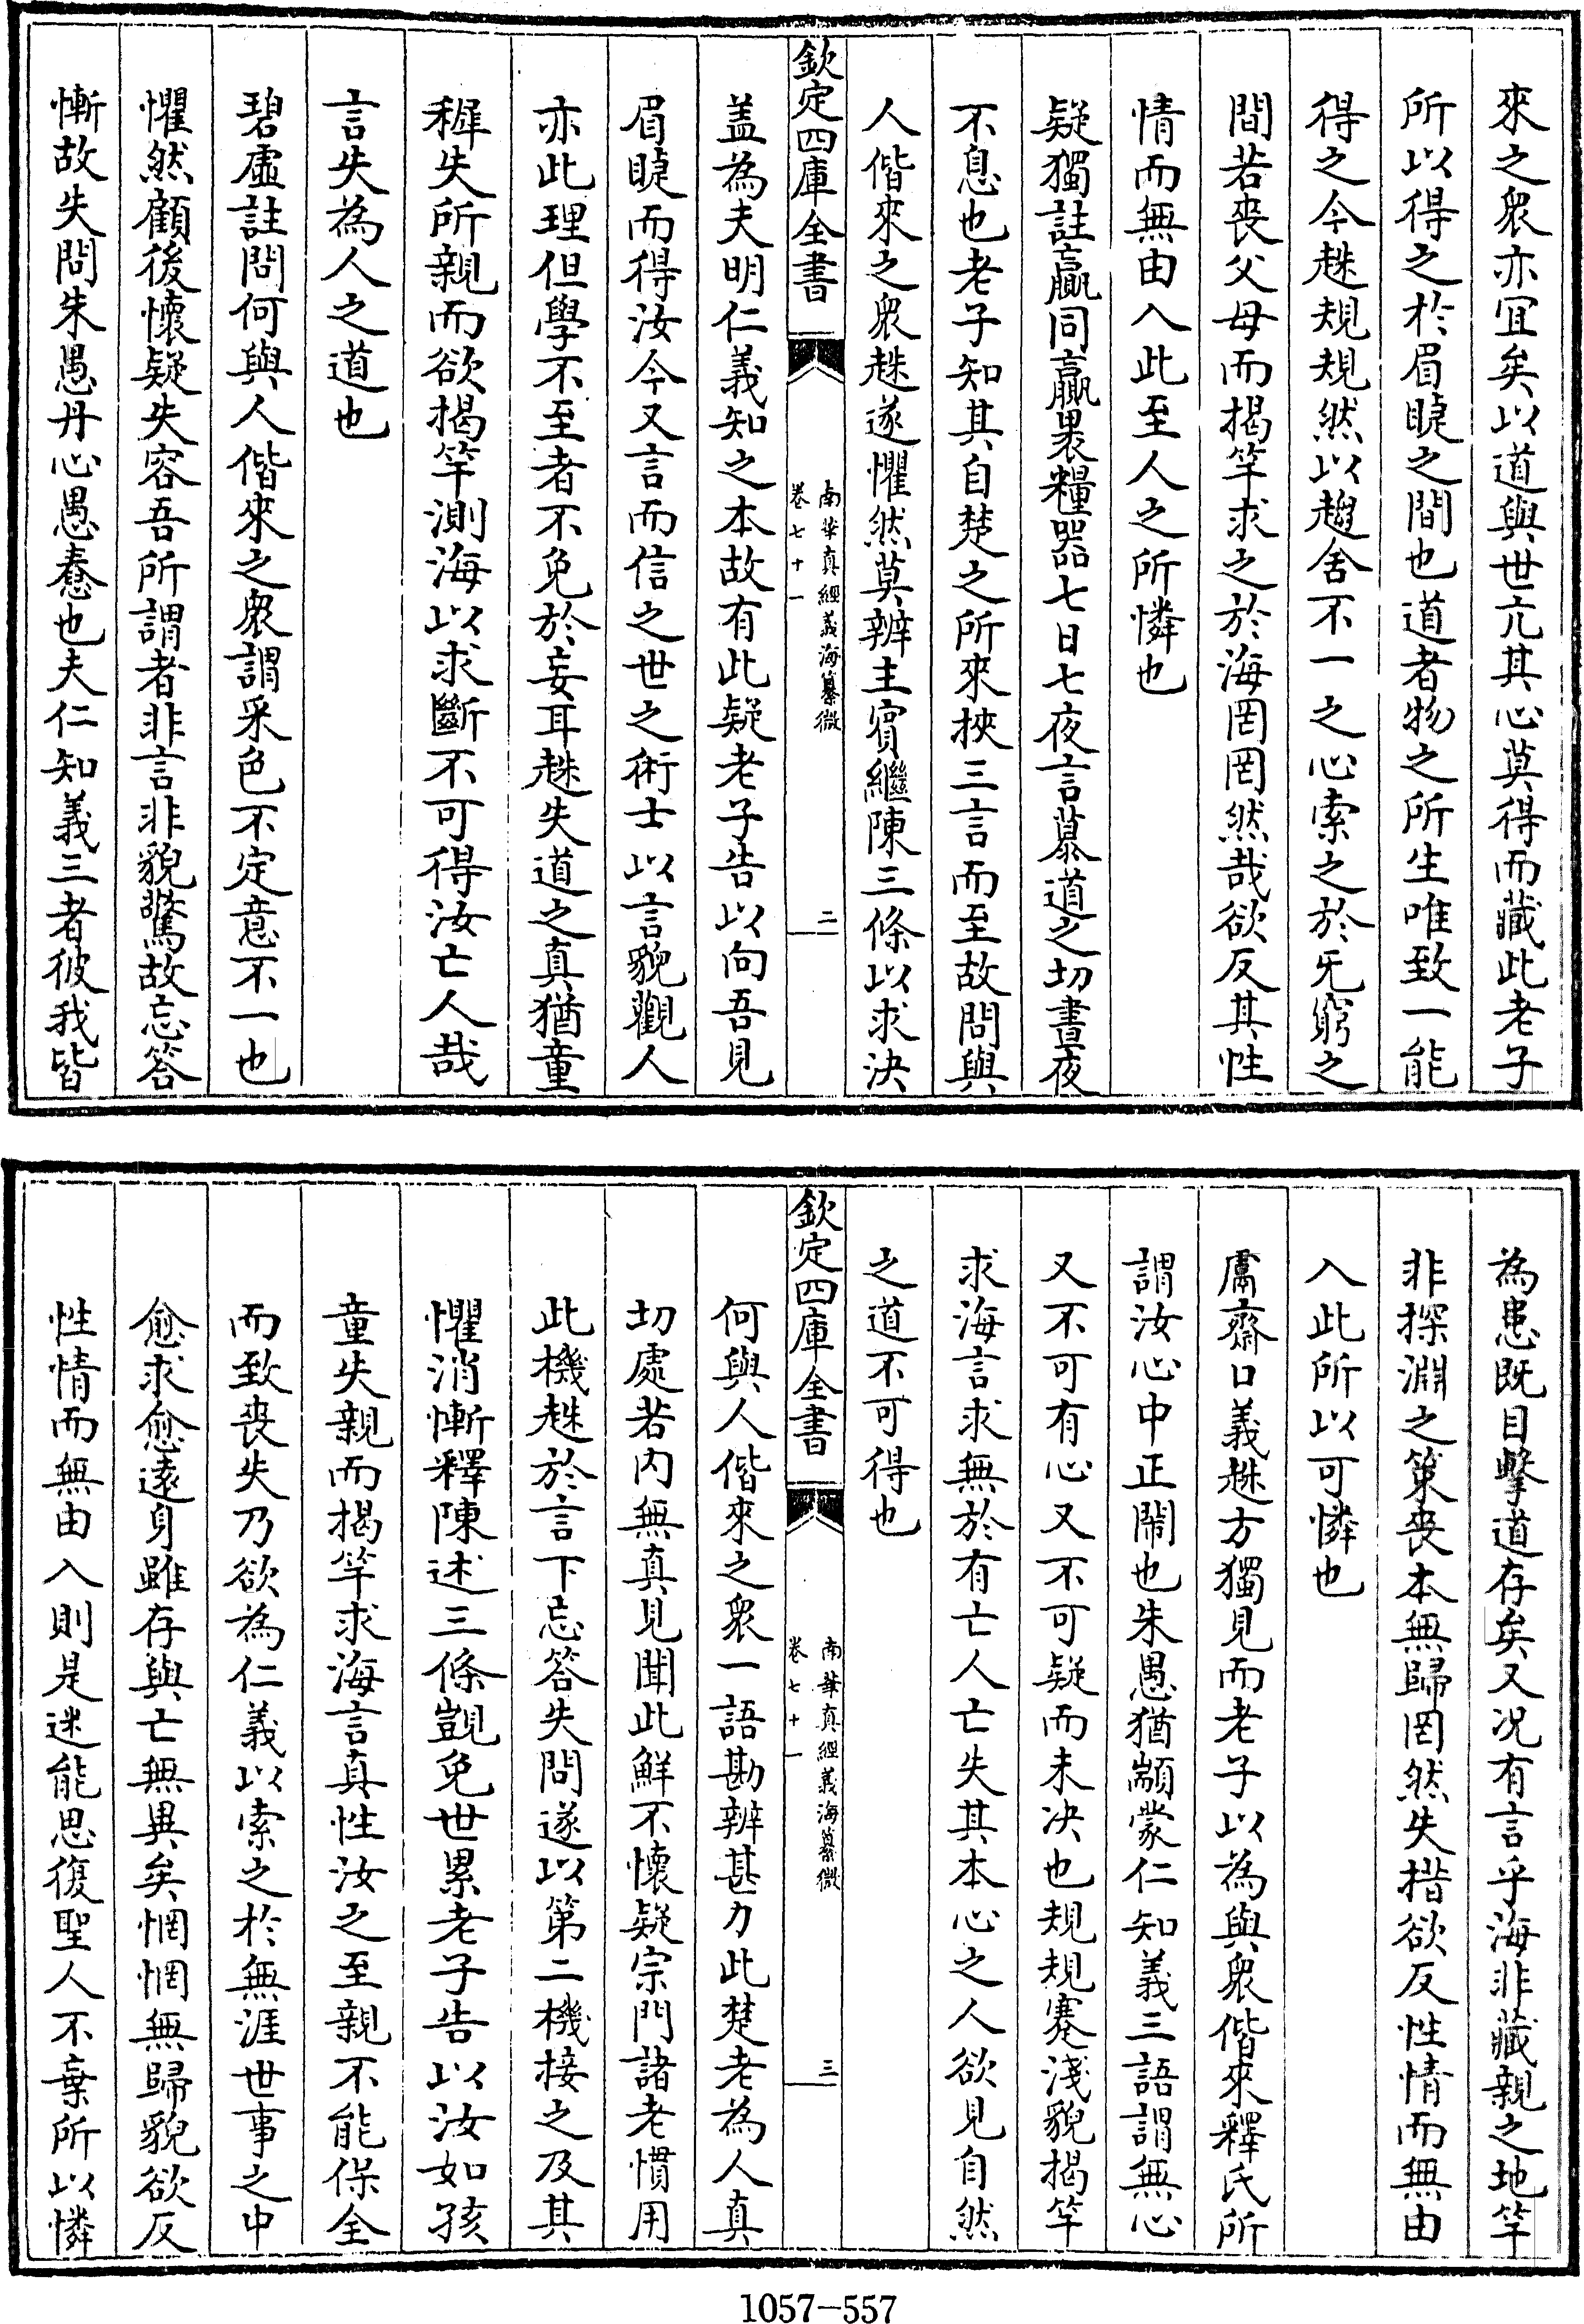 來之衆亦宜矣以道與世亢其心莫得而藏此老子
所以得之於眉睫之間也道者物之所生唯致一能
得之今趎規規然以趨舍不一之心索之於无窮之
間若喪父母而揭竿求之於海罔罔然哉欲反其性
情而無由入此至人之所憐也
疑獨註贏同贏裹糧器七日七夜言慕道之切晝夜
不息也老子知其自楚之所來挾三言而至故問與
人偕來之衆趎遂懼然莫辨主賔繼陳三條以求決
欽定四庫全書
南華真經義海纂微
卷七十一
二
盖為夫明仁義知之本故有此疑老子告以向吾見
眉睫而得汝今又言而信之世之術士以言貌觀人
亦此理但學不至者不免於妄耳趎失道之真猶童
穉失所親而欲揭竿測海以求斷不可得汝亡人哉
言失為人之道也
碧虛註問何與人偕來之衆謂采色不定意不一也
懼然顧後懷疑失容吾所謂者非言非貌驚故忘答
慚故失問朱愚丹心愚惷也夫仁知義三者彼我皆
為患既目擊道存矣又况有言乎海非藏親之地竿
非探淵之策喪本無歸罔然失措欲反性情而無由
入此所以可憐也
鬳齋口義趎方獨見而老子以為與衆偕來釋氏所
謂汝心中正鬧也朱愚猶顓蒙仁知義三語謂無心
又不可有心又不可疑而未決也規規蹇淺貌揭竿
求海言求無於有亡人亡失其本心之人欲見自然
之道不可得也
欽定四庫全書
南華真經義海纂微
卷七十一
三
何與人偕來之衆一語勘辨甚力此楚老為人真
切處若内無真見聞此鮮不懷疑宗門諸老慣用
此機趎於言下忘答失問遂以第二機接之及其
懼消慚釋陳述三條覬免世累老子告以汝如孩
童失親而揭竿求海言真性汝之至親不能保全
而致喪失乃欲為仁義以索之於無涯世事之中
愈求愈遠身雖存與亡無異矣惘惘無歸貌欲反
性情而無由入則是迷能思復聖人不棄所以憐
1057-557